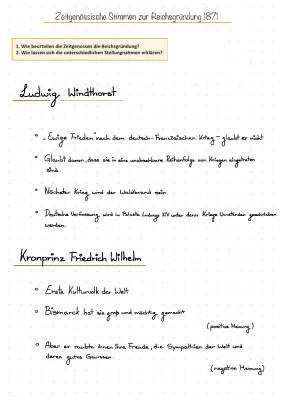 Zeitgenössische Stimmen zur Reichsgründung 1871
1. Wie beurteilen die Zeitgenossen die Reichsgründung?
2. Wie lassen sich die unterschiedlichen Stellungnahmen erklären?
Ludwig Windthorst
"Ewige Frieden" nach dem deutsch-Französischen Krieg - glaubt er nicht
Glaubt daran, dass sie in eine unabsehbare Reihenfolge von Kriegen eingetreten
sind.
Nächster Krieg wird der Weltbrand sein.
Deutsche Verfassung wird in Palaste Ludwigs XIV unter dem Kriege Umständen geschrieben
werden.
Kronprinz Friedrich Wilhelm
Erste Kulturvolk der Welt
Bismarck hat sie groß und mächtig gemacht
(positive Meinung)
Aber er raubte ihnen ihre Freude, die Sympathien der Welt und
deren gutes Gewissen.
(negative Meinung)